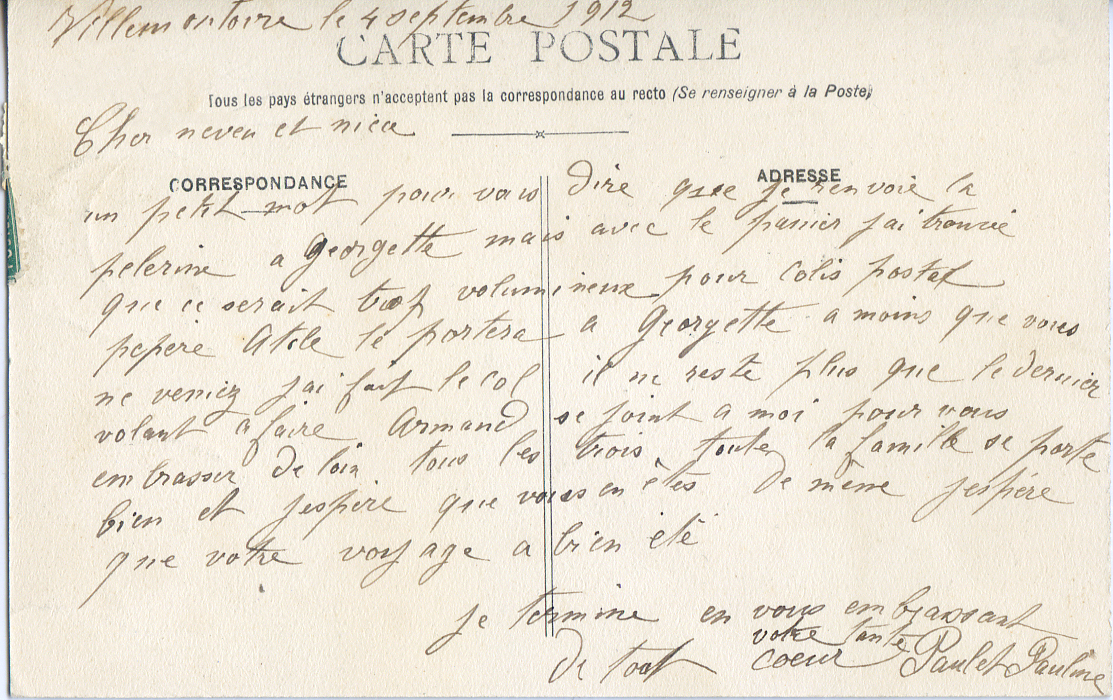 Villemontoire le 4 septembre 1912
CARTE POSTALE
Tous les pays étrangers n'acceptent pas la correspondance au recto (Se renseigner à la Poste)
Cher neveu et nièce
CORRESPONDANCE
ADRESSE
un petit mot pour vous dire que je renvoie la
pelerine a Georgette mais avec le panier jai trouvé
que ce serait trop volumineux pour colis postal
pepere le portera a Georgette a moins que vous
ne veniez jai fait le col il ne reste plus que le dernier
volant a faire Armand se joint a moi pour vous
embrasser de loin tous les trois toute la famille se porte
bien et jespère que vous en êtes de même jespére
que votre voyage a bien été
je termine en vous embrassant
de tout coeur votre tante Paulet Pauline